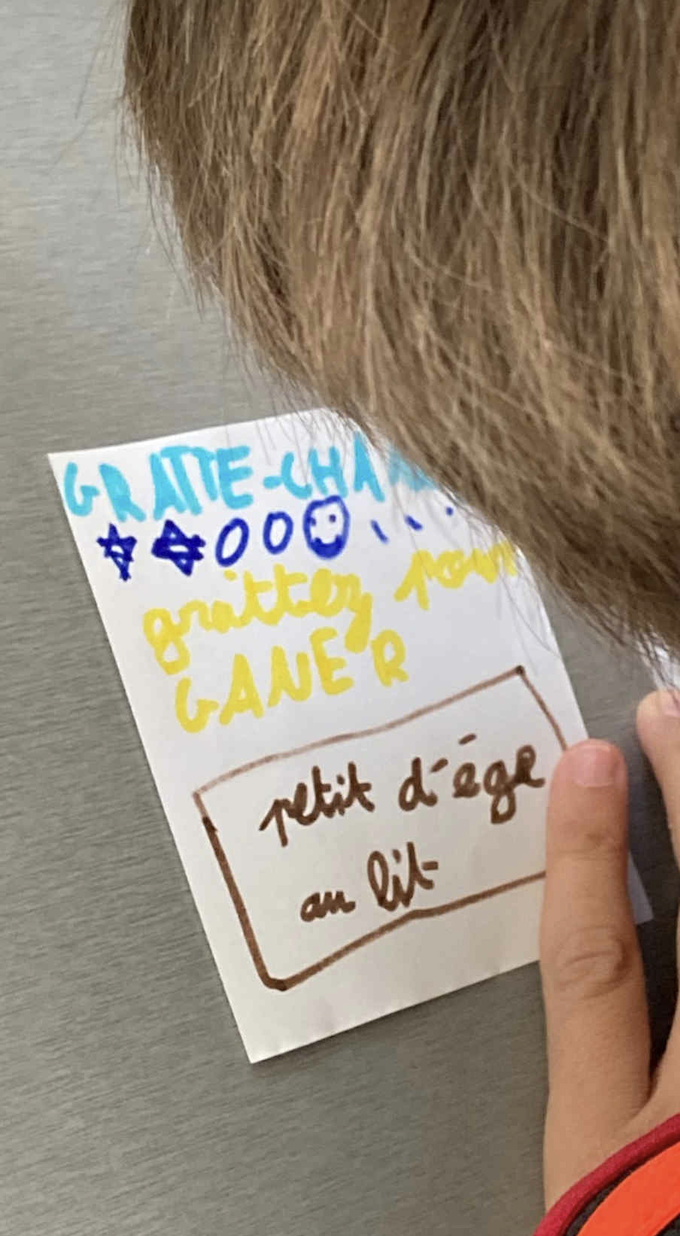 GRATTE-CHAN
grattez pour
GANER
petit d'ége
au lit